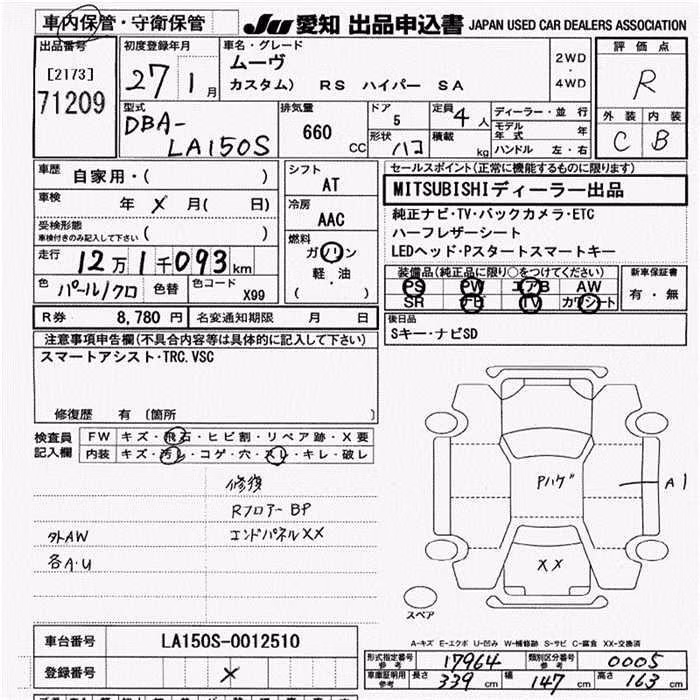 車内保管・守衛保管 JU 愛知 出品申込書 JAPAN USED CAR DEALERS ASSOCIATION
出品番号 初度登録年月 車名・グレード 2WD ・ 4WD 評価点
[2173] 71209 27 1月 ムーヴ R
カスタム) RS ハイパー SA
型式 排気量 ドア 定員 ディーラー・並行 外装 内装
DBA-LA150S 660 CC 5 4人 モデル年式 年 C B
形状 ハコ 積載 kg ハンドル 左・右
車歴 自家用・( ) シフト AT セールスポイント(正常に機能するものに限ります)
車検 年 メ 月( 日) 冷房 AAC MITSUBISHIディーラー出品
受検形態 車検付きのみ記入して下さい ( ) 燃料 ガソリン 軽・油 ( )
純正ナビ・TV・バックカメラ・ETC
ハーフレザーシート
LEDヘッド・Pスタートスマートキー
走行 12万1千093km 装備品(純正品に限り○をつけてください) 新車保証書
色 パール/クロ 色替 色コード X99 PS PW エアB AW 有・無
SR ナビ TV カワシート
R券 8,780 円 名変通知期限 月 日 後日品
Sキー・ナビSD
注意事項申告欄(不具合内容等は具体的に記入して下さい)
スマートアシスト・TRC.VSC
修復歴 有 〔箇所 〕
検査員記入欄 FW キズ・飛石・ヒビ割・リペア跡・X要
内装 キズ・汚レ・コゲ・穴・スレ・キレ・破レ
修復
Rフロアー BP
外AW エンドパネルXX
各A・U
Pハゲ A1
XX
スペア
A-キズ E-エクボ U-凹み W-補修跡 S-サビ C-腐食 XX-交換済
車台番号 LA150S-0012510
登録番号 メ
形式指定番号 参考 17964 類別区分番号 参考 0005
車庫証明用 参考 長さ 339 cm 幅 147 cm 高さ 163 cm